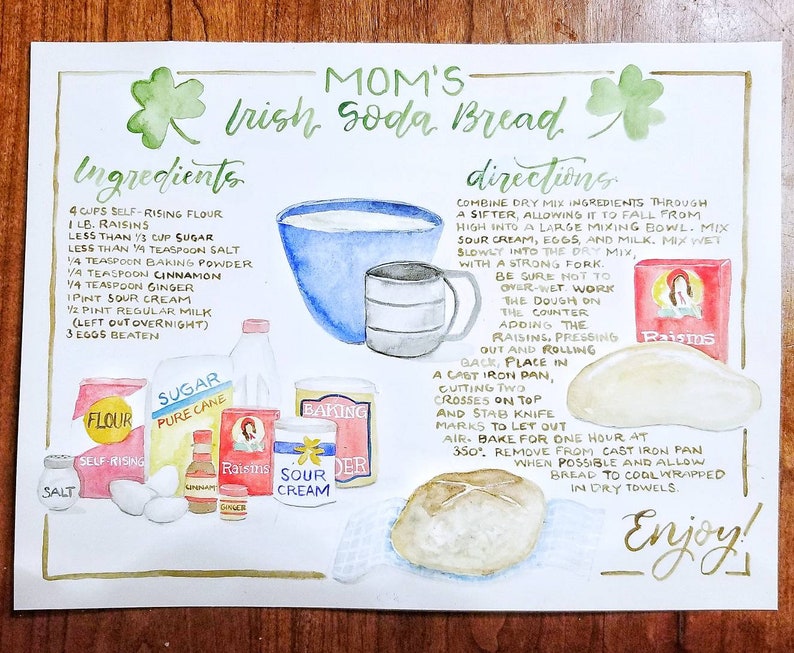 MOM'S
Irish Soda Bread
Ingredients
4 CUPS SELF-RISING FLOUR
1 LB. RAISINS
LESS THAN 1/3 CUP SUGAR
LESS THAN 1/4 TEASPOON SALT
1/4 TEASPOON BAKING POWDER
1/4 TEASPOON CINNAMON
1/4 TEASPOON GINGER
1 PINT SOUR CREAM
1/2 PINT REGULAR MILK
(LEFT OUT OVERNIGHT)
3 EGGS BEATEN
directions
COMBINE DRY MIX INGREDIENTS THROUGH
A SIFTER, ALLOWING IT TO FALL FROM
HIGH INTO A LARGE MIXING BOWL. MIX
SOUR CREAM, EGGS, AND MILK. MIX WET
SLOWLY INTO THE DRY MIX,
WITH A STRONG FORK.
BE SURE NOT TO
OVER-WET. WORK
THE DOUGH ON
THE COUNTER
ADDING THE
RAISINS, PRESSING
OUT AND ROLLING
BACK, PLACE IN
A CAST IRON PAN,
CUTTING TWO
CROSSES ON TOP
AND STAB KNIFE
MARKS TO LET OUT
AIR. BAKE FOR ONE HOUR AT
350°. REMOVE FROM CAST IRON PAN
WHEN POSSIBLE AND ALLOW
BREAD TO COOL WRAPPED
IN DRY TOWELS.
Raisins
SUGAR
PURE CANE
FLOUR
SELF-RISING
SALT
CINNAM
Raisins
GINGER
SOUR
CREAM
BAKING
DER
Enjoy!